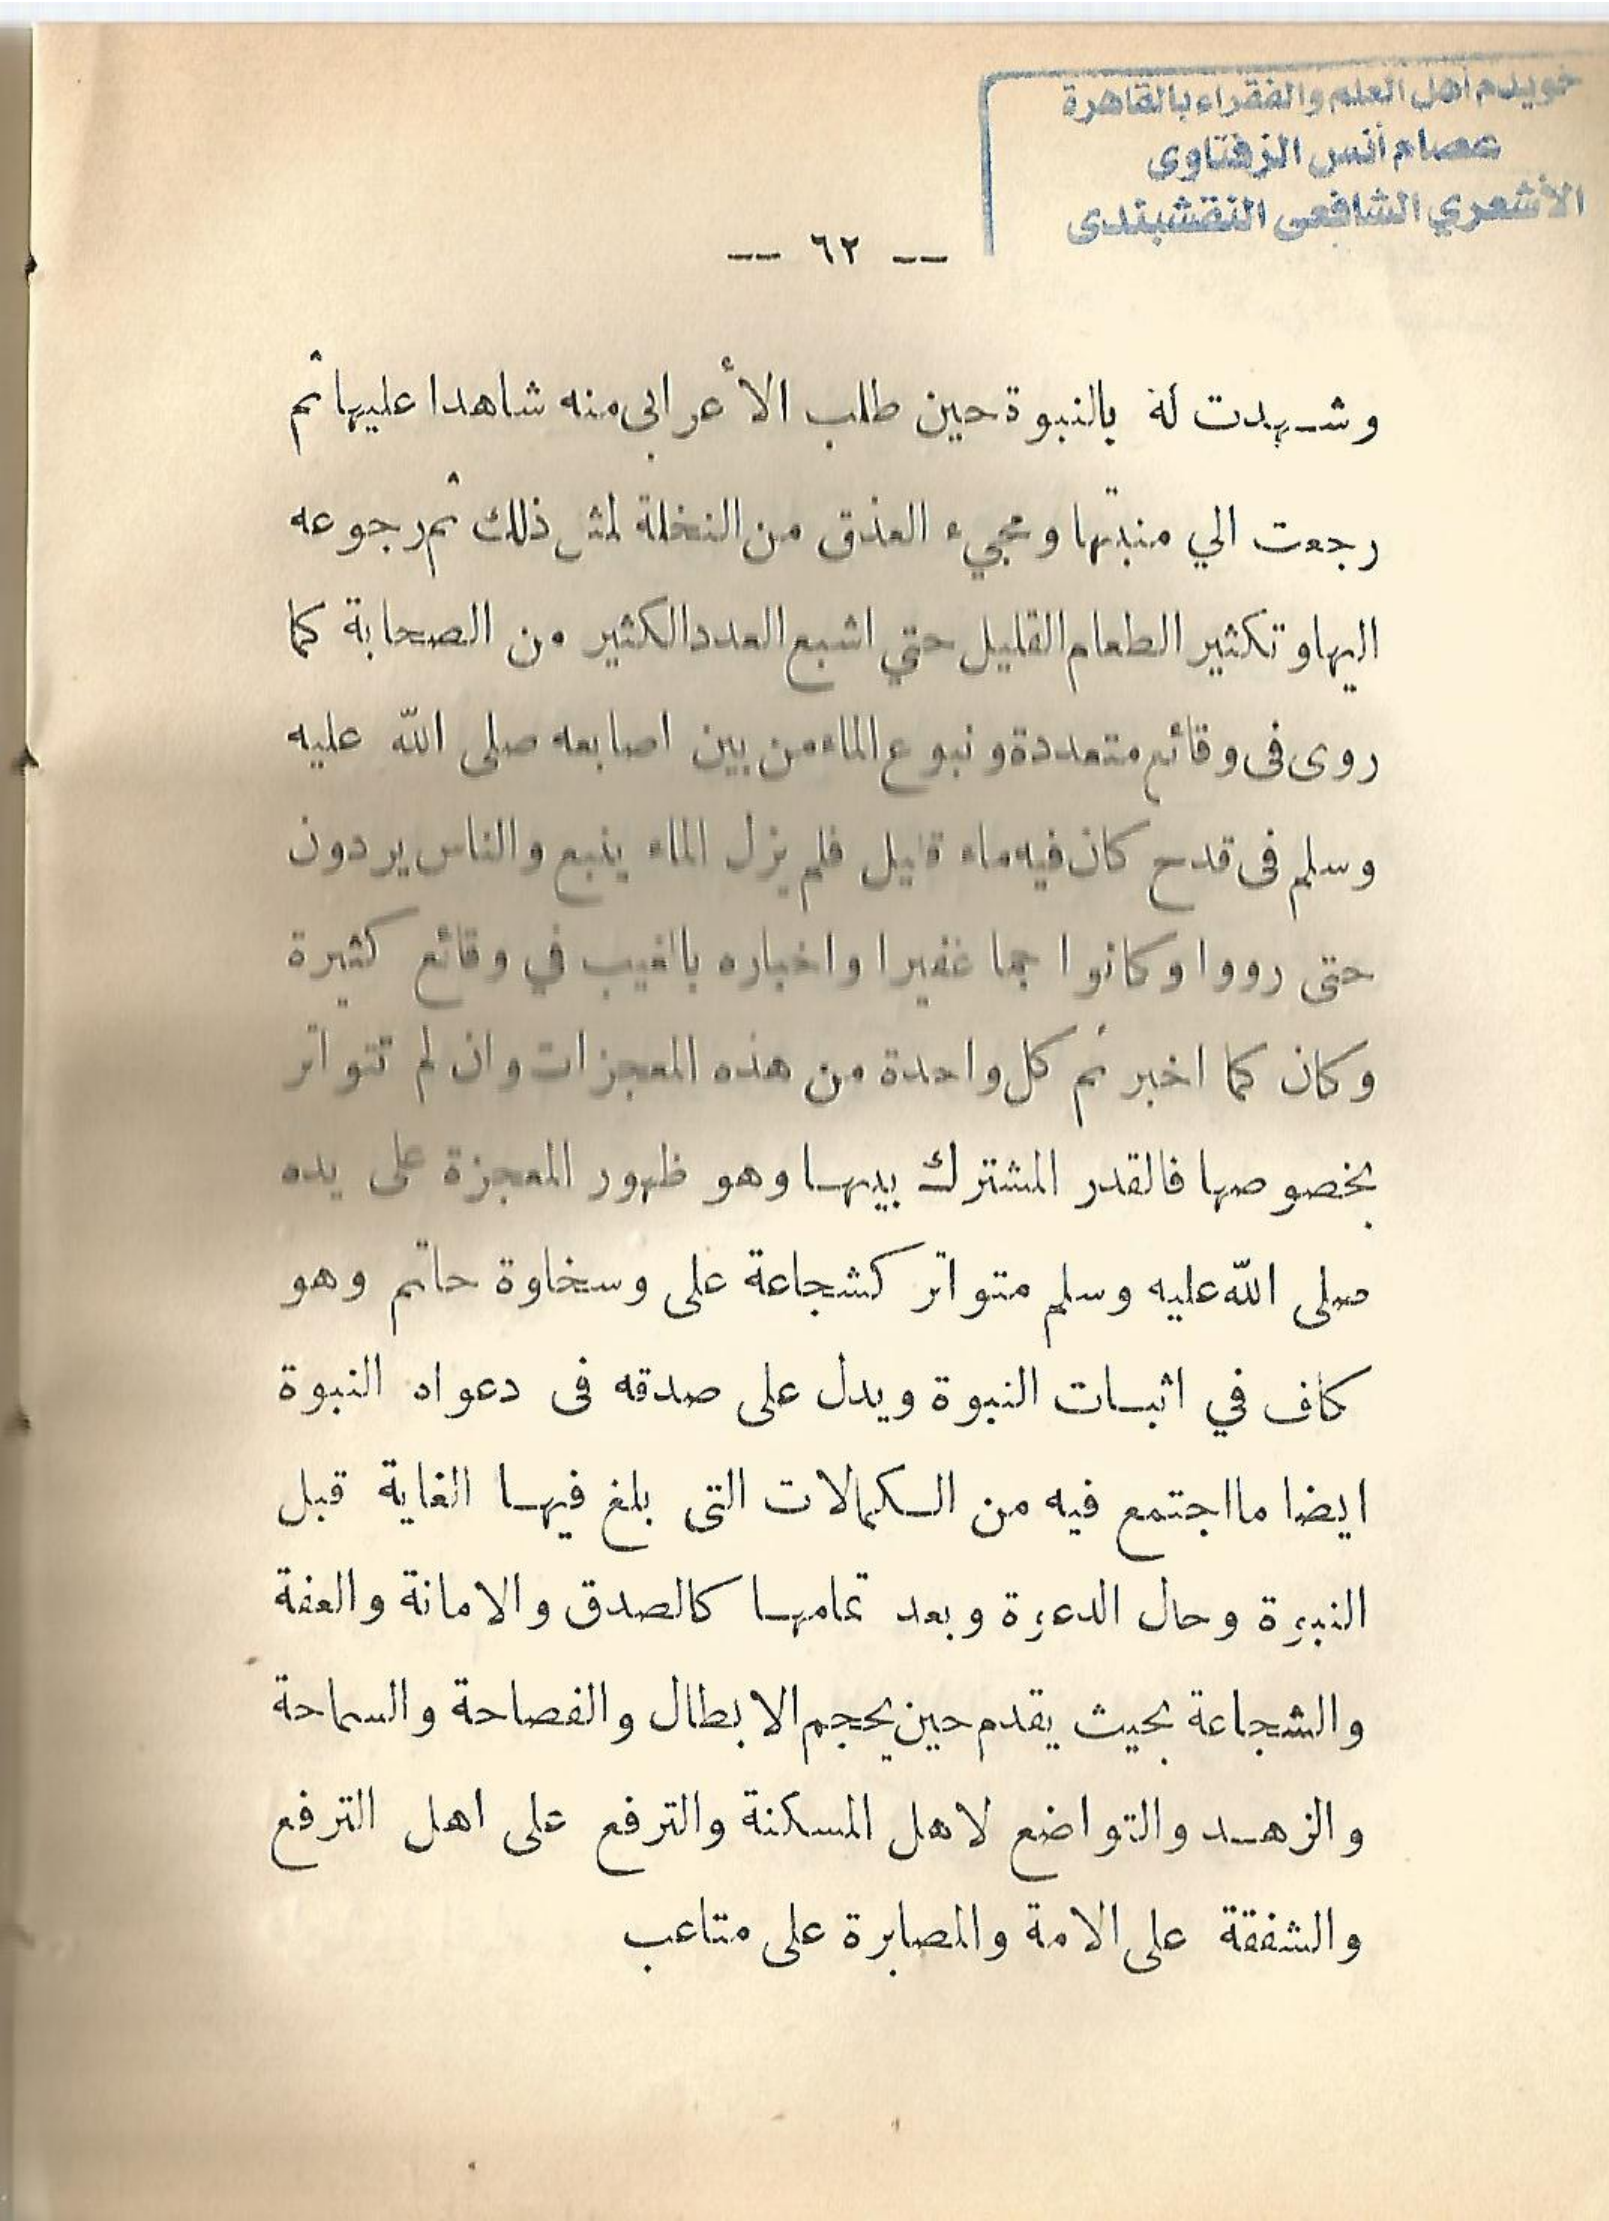 خويدم أهل العلم والفقراء بالقاهرة
عصام أنس الزفتاوى
الأشعري الشافعى النقشبندى
-- ٦٢ --
وشهدت له بالنبوة حين طلب الأعرابى منه شاهدا عليها ثم
رجعت الي منبتها ومجيء العذق من النخلة لمثل ذلك ثم رجوعه
اليها وتكثير الطعام القليل حتي اشبع العدد الكثير من الصحابة كما
روى فى وقائع متعددة ونبوع الماء من بين اصابعه صلى الله عليه
وسلم فى قدح كان فيه ماء قليل فلم يزل الماء ينبع والناس يردون
حتى رووا وكانوا جما غفيرا واخباره بالغيب في وقائع كثيرة
وكان كما اخبر ثم كل واحدة من هذه المعجزات وان لم تتواتر
بخصوصها فالقدر المشترك بينها وهو ظهور المعجزة على يده
صلى الله عليه وسلم متواتر كشجاعة على وسخاوة حاتم وهو
كاف في اثبات النبوة ويدل على صدقه فى دعواه النبوة
ايضا ما اجتمع فيه من الكمالات التى بلغ فيها الغاية قبل
النبوة وحال الدعوة وبعد تمامها كالصدق والامانة والعفة
والشجاعة بحيث يقدم حين يحجم الابطال والفصاحة والسماحة
والزهد والتواضع لاهل المسكنة والترفع على اهل الترفع
والشفقة على الامة والمصابرة على متاعب